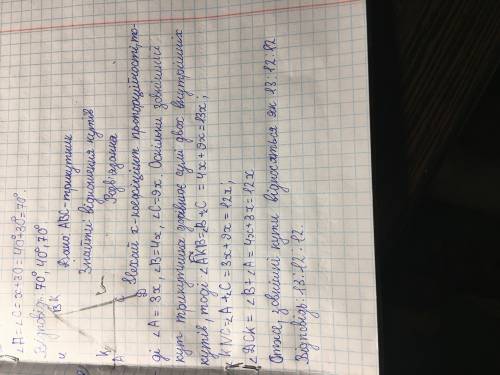 ∠A = ∠C = x+30 = 40°+30° = 70°.
70°, 40°, 70°
B K
Дано: ABC - трикутник
Знайти: відношення кутів
K
A C D
Розв'язання
Нехай x - коефіцієнт пропорційності, то-
ді ∠A = 3x, ∠B = 4x, ∠C = 9x. Оскільки зовнішній
кут трикутника дорівнює сумі двох внутрішніх
кутів, тоді ∠AKB = ∠B + ∠C = 4x + 9x = 13x;
∠A + ∠C = 3x + 9x = 12x;
∠DCK = ∠B + ∠A = 4x + 3x = 12x
Отже, зовнішні кути відносяться як 13:12:12
Відповідь: 13:12:12.